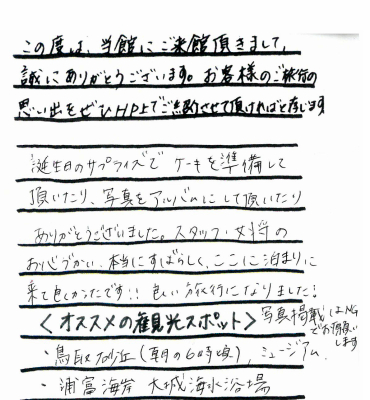 この度は、当館にご来館頂きまして、
誠にありがとうございます。お客様のご旅行の
思い出をぜひHP上でご紹介させて頂ければと存じます
誕生日のサプライズで ケーキを準備して
頂いたり、写真をアルバムにして頂いたり
ありがとうございました。スタッフ・女将の
お心づかい、本当にすばらしく、ここに泊まりに
来て良かったです!! 良い旅行になりました!
<オススメの観光スポット>
写真掲載はNG
でお願い
します
・鳥取砂丘(朝の6時頃)、ミュージアム
・浦富海岸 大城海水浴場